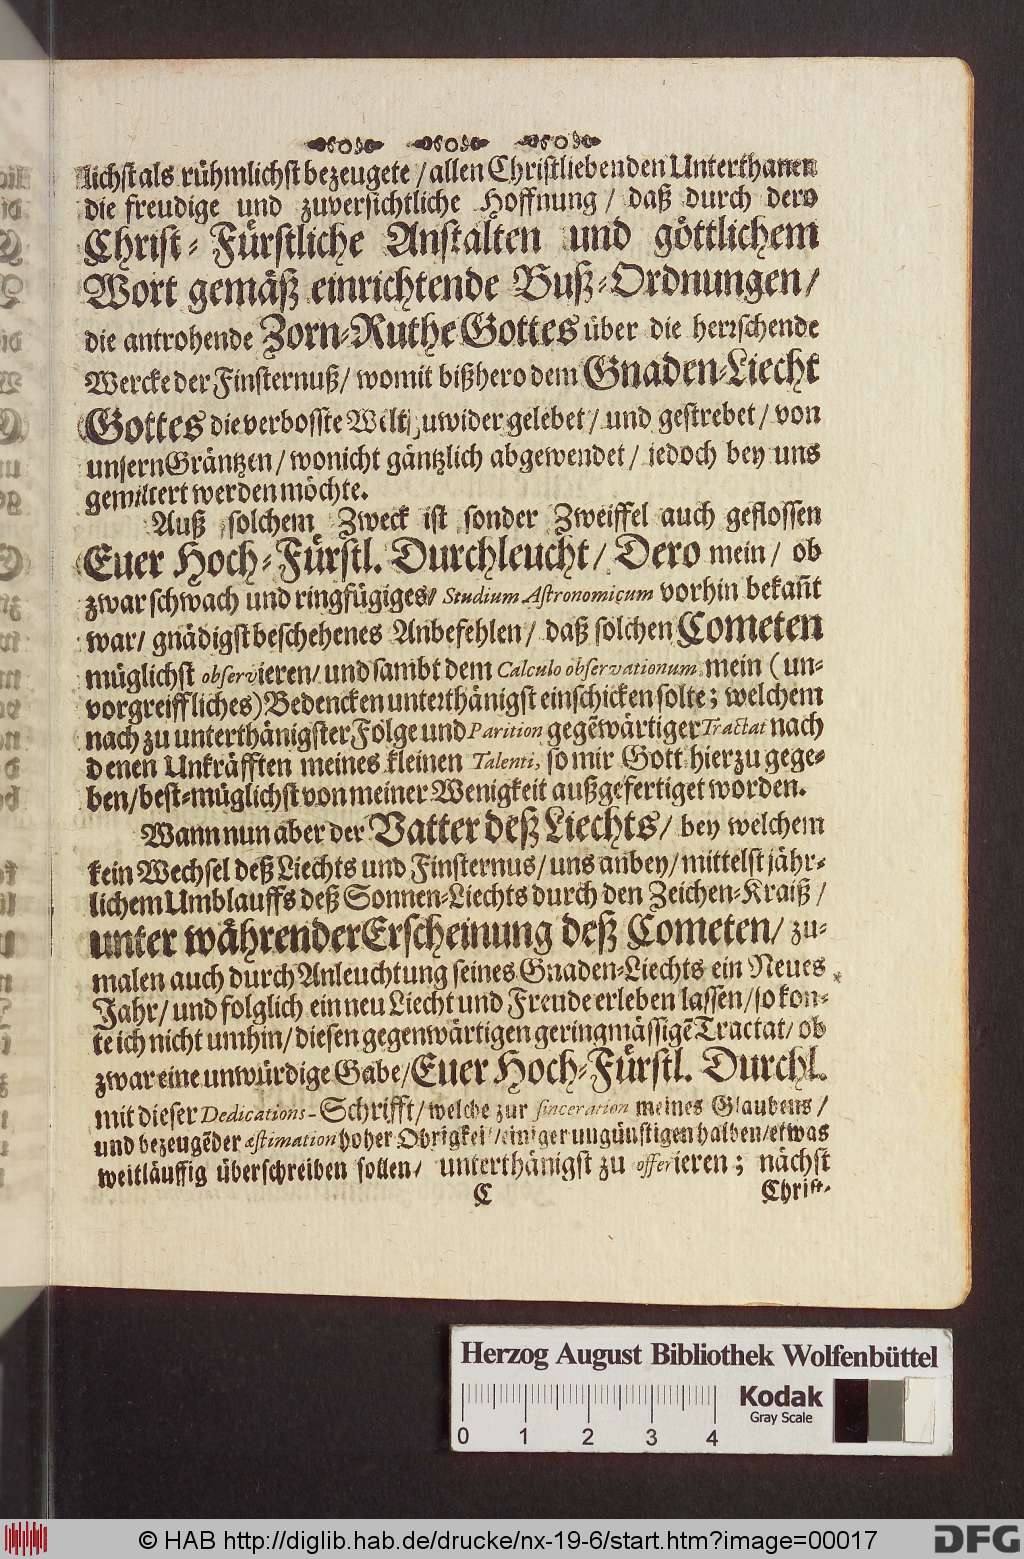 lichst als rühmlichst bezeugete / allen Christliebenden Unterthanen
die freudige und zuversichtliche Hoffnung / daß durch dero
Christ-Fürstliche Anstalten und göttlichem
Wort gemäß einrichtende Buß-Ordnungen /
die antrohende Zorn-Ruthe Gottes über die herrschende
Wercke der Finsternuß / womit bißhero dem Gnaden-Liecht
Gottes die verbosste Welt zuwider gelebet / und gestrebet / von
unsern Gräntzen / wonicht gäntzlich abgewendet / jedoch bey uns
gemiltert werden möchte.
Auß solchem Zweck ist sonder Zweiffel auch geflossen
Euer Hoch-Fürstl. Durchleucht / Dero mein / ob
zwar schwach und ringfügiges / Studium Astronomicum vorhin bekañt
war / gnädigst beschehenes Anbefehlen / daß solchen Cometen
müglichst observieren / und sambt dem Calculo observationum mein (un-
vorgreiffliches) Bedencken unterthänigst einschicken solte; welchem
nach zu unterthänigster Folge und Parition gegēwärtiger Tractat nach
denen Unkräfften meines kleinen Talenti, so mir Gott hierzu gege-
ben / best-müglichst von meiner Wenigkeit außgefertiget worden.
Wann nun aber der Vatter deß Liechts / bey welchem
kein Wechsel deß Liechts und Finsternus / uns anbey / mittelst jähr-
lichem Umblauffs deß Sonnen-Liechts durch den Zeichen-Kraiß /
unter währender Erscheinung deß Cometen / zu-
malen auch durch Anleuchtung seines Gnaden-Liechts ein Neues
Jahr / und folglich ein neu Liecht und Freude erleben lassen / so kon-
te ich nicht umhin / diesen gegenwärtigen geringmässigē Tractat / ob
zwar eine unwürdige Gabe / Euer Hoch-Fürstl. Durchl.
mit dieser Dedications-Schrifft / welche zur sinceration meines Glaubens /
und bezeugēder æstimation hoher Obrigkeit / einiger ungünstigen halben / etwas
weitläuffig überschreiben sollen / unterthänigst zu offerieren; nächst
C Christ-
Herzog August Bibliothek Wolfenbüttel
Kodak
Gray Scale
0 1 2 3 4
© HAB http://diglib.hab.de/drucke/nx-19-6/start.htm?image=00017
DFG